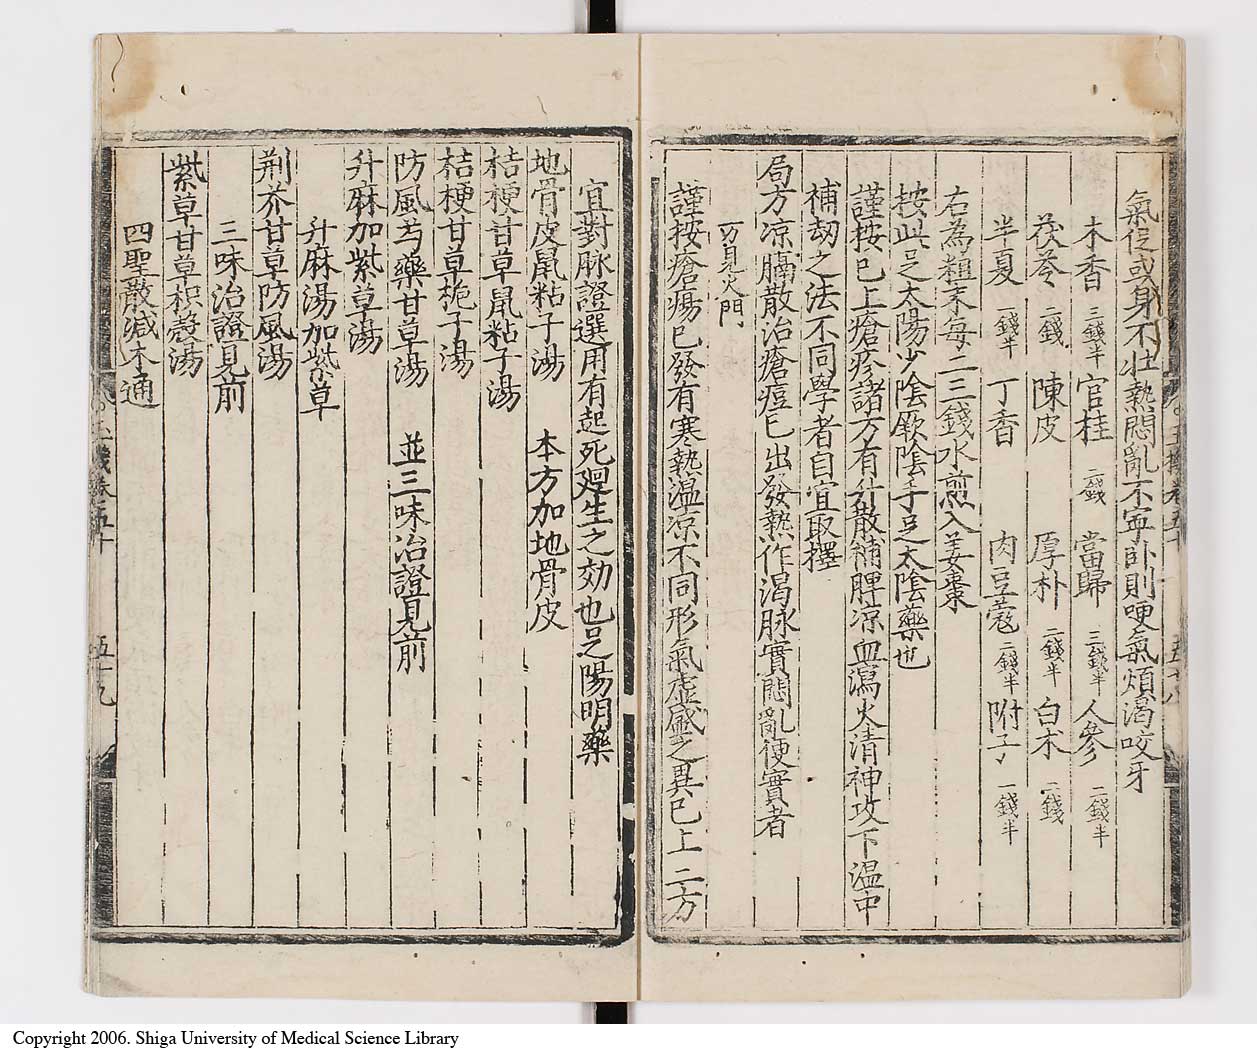 氣促或身不壯熱悶亂不寧卧則哽氣煩渴咬牙
木香 三錢半 官桂 二錢 當歸 三錢半 人參 二錢半
茯苓 二錢 陳皮 厚朴 二錢半 白朮 二錢
半夏 一錢半 丁香 肉豆蔻 二錢半 附子 一錢半
右為粗末每二三錢水煎入姜棗
按此足太陽少陰厥陰手足太陰藥也
謹按已上瘡疹諸方有升散補脾凉血瀉火清神攻下温中
補劫之法不同學者自宜取擇
局方凉膈散治瘡痘已出發熱作渴脉實悶亂便實者
方見火門
謹按瘡瘍已發有寒熱温凉不同形氣虛盛之異已上二方
宜對脉證選用有起死廻生之効也足陽明藥
地骨皮鼠粘子湯 本方加地骨皮
桔梗甘草鼠粘子湯
桔梗甘草梔子湯
防風芍藥甘草湯 並三味治證見前
升麻加紫草湯
升麻湯加紫草
荆芥甘草防風湯
三味治證見前
紫草甘草枳殼湯
四聖散減木通
卷五十 五十九